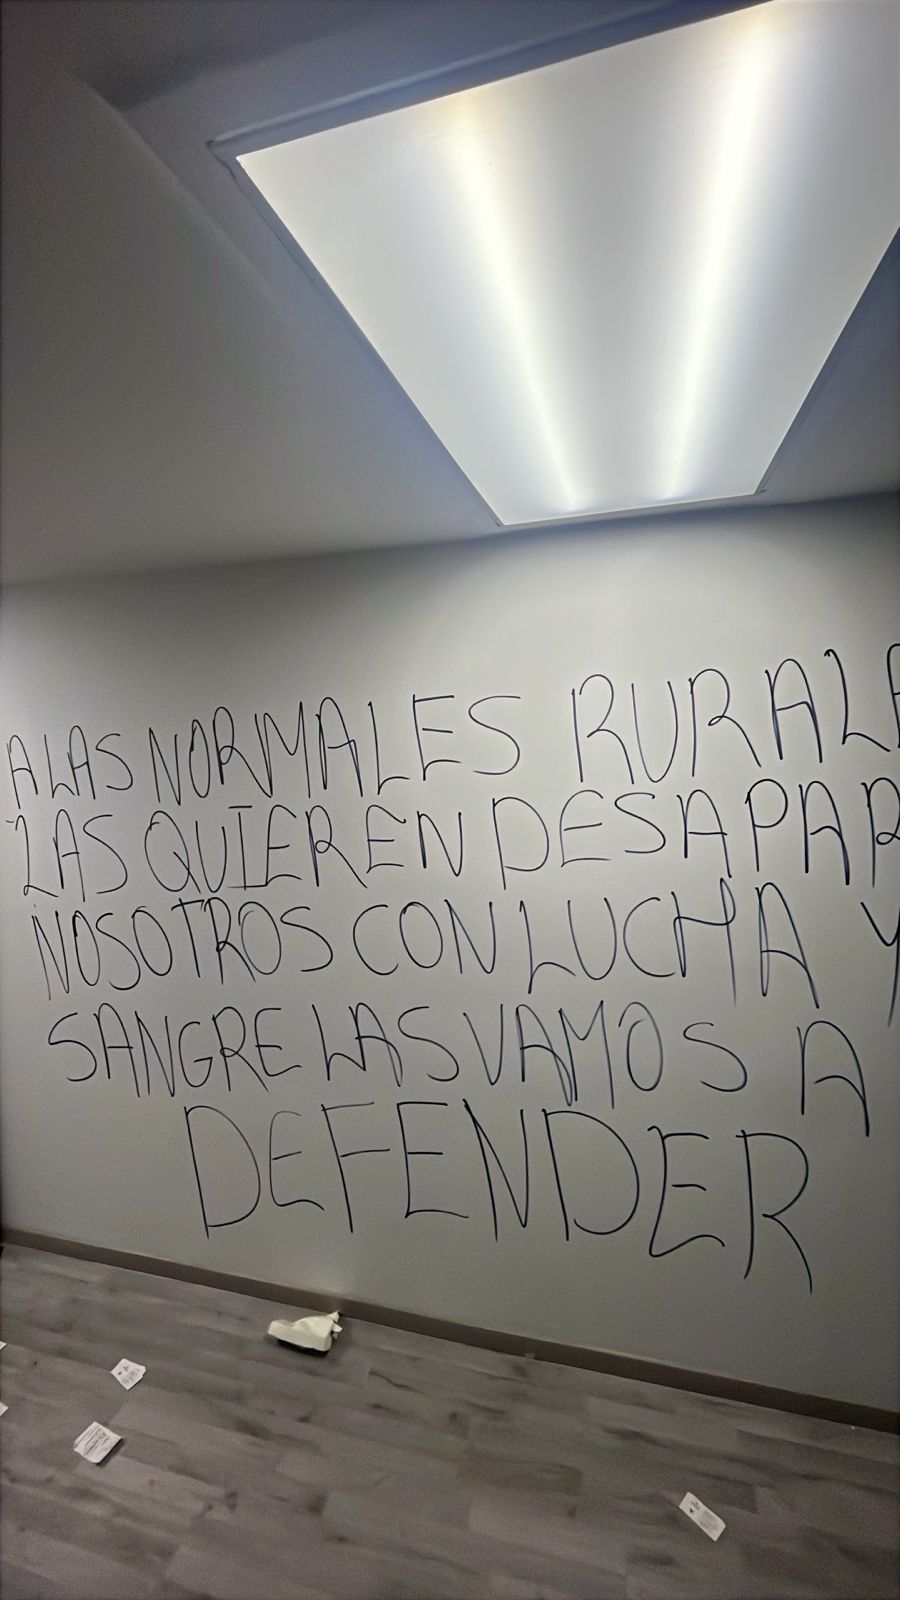 A LAS NORMALES RURALE
LAS QUIEREN DESAPAR
NOSOTROS CON LUCHA Y
SANGRE LAS VAMOS A
DEFENDER